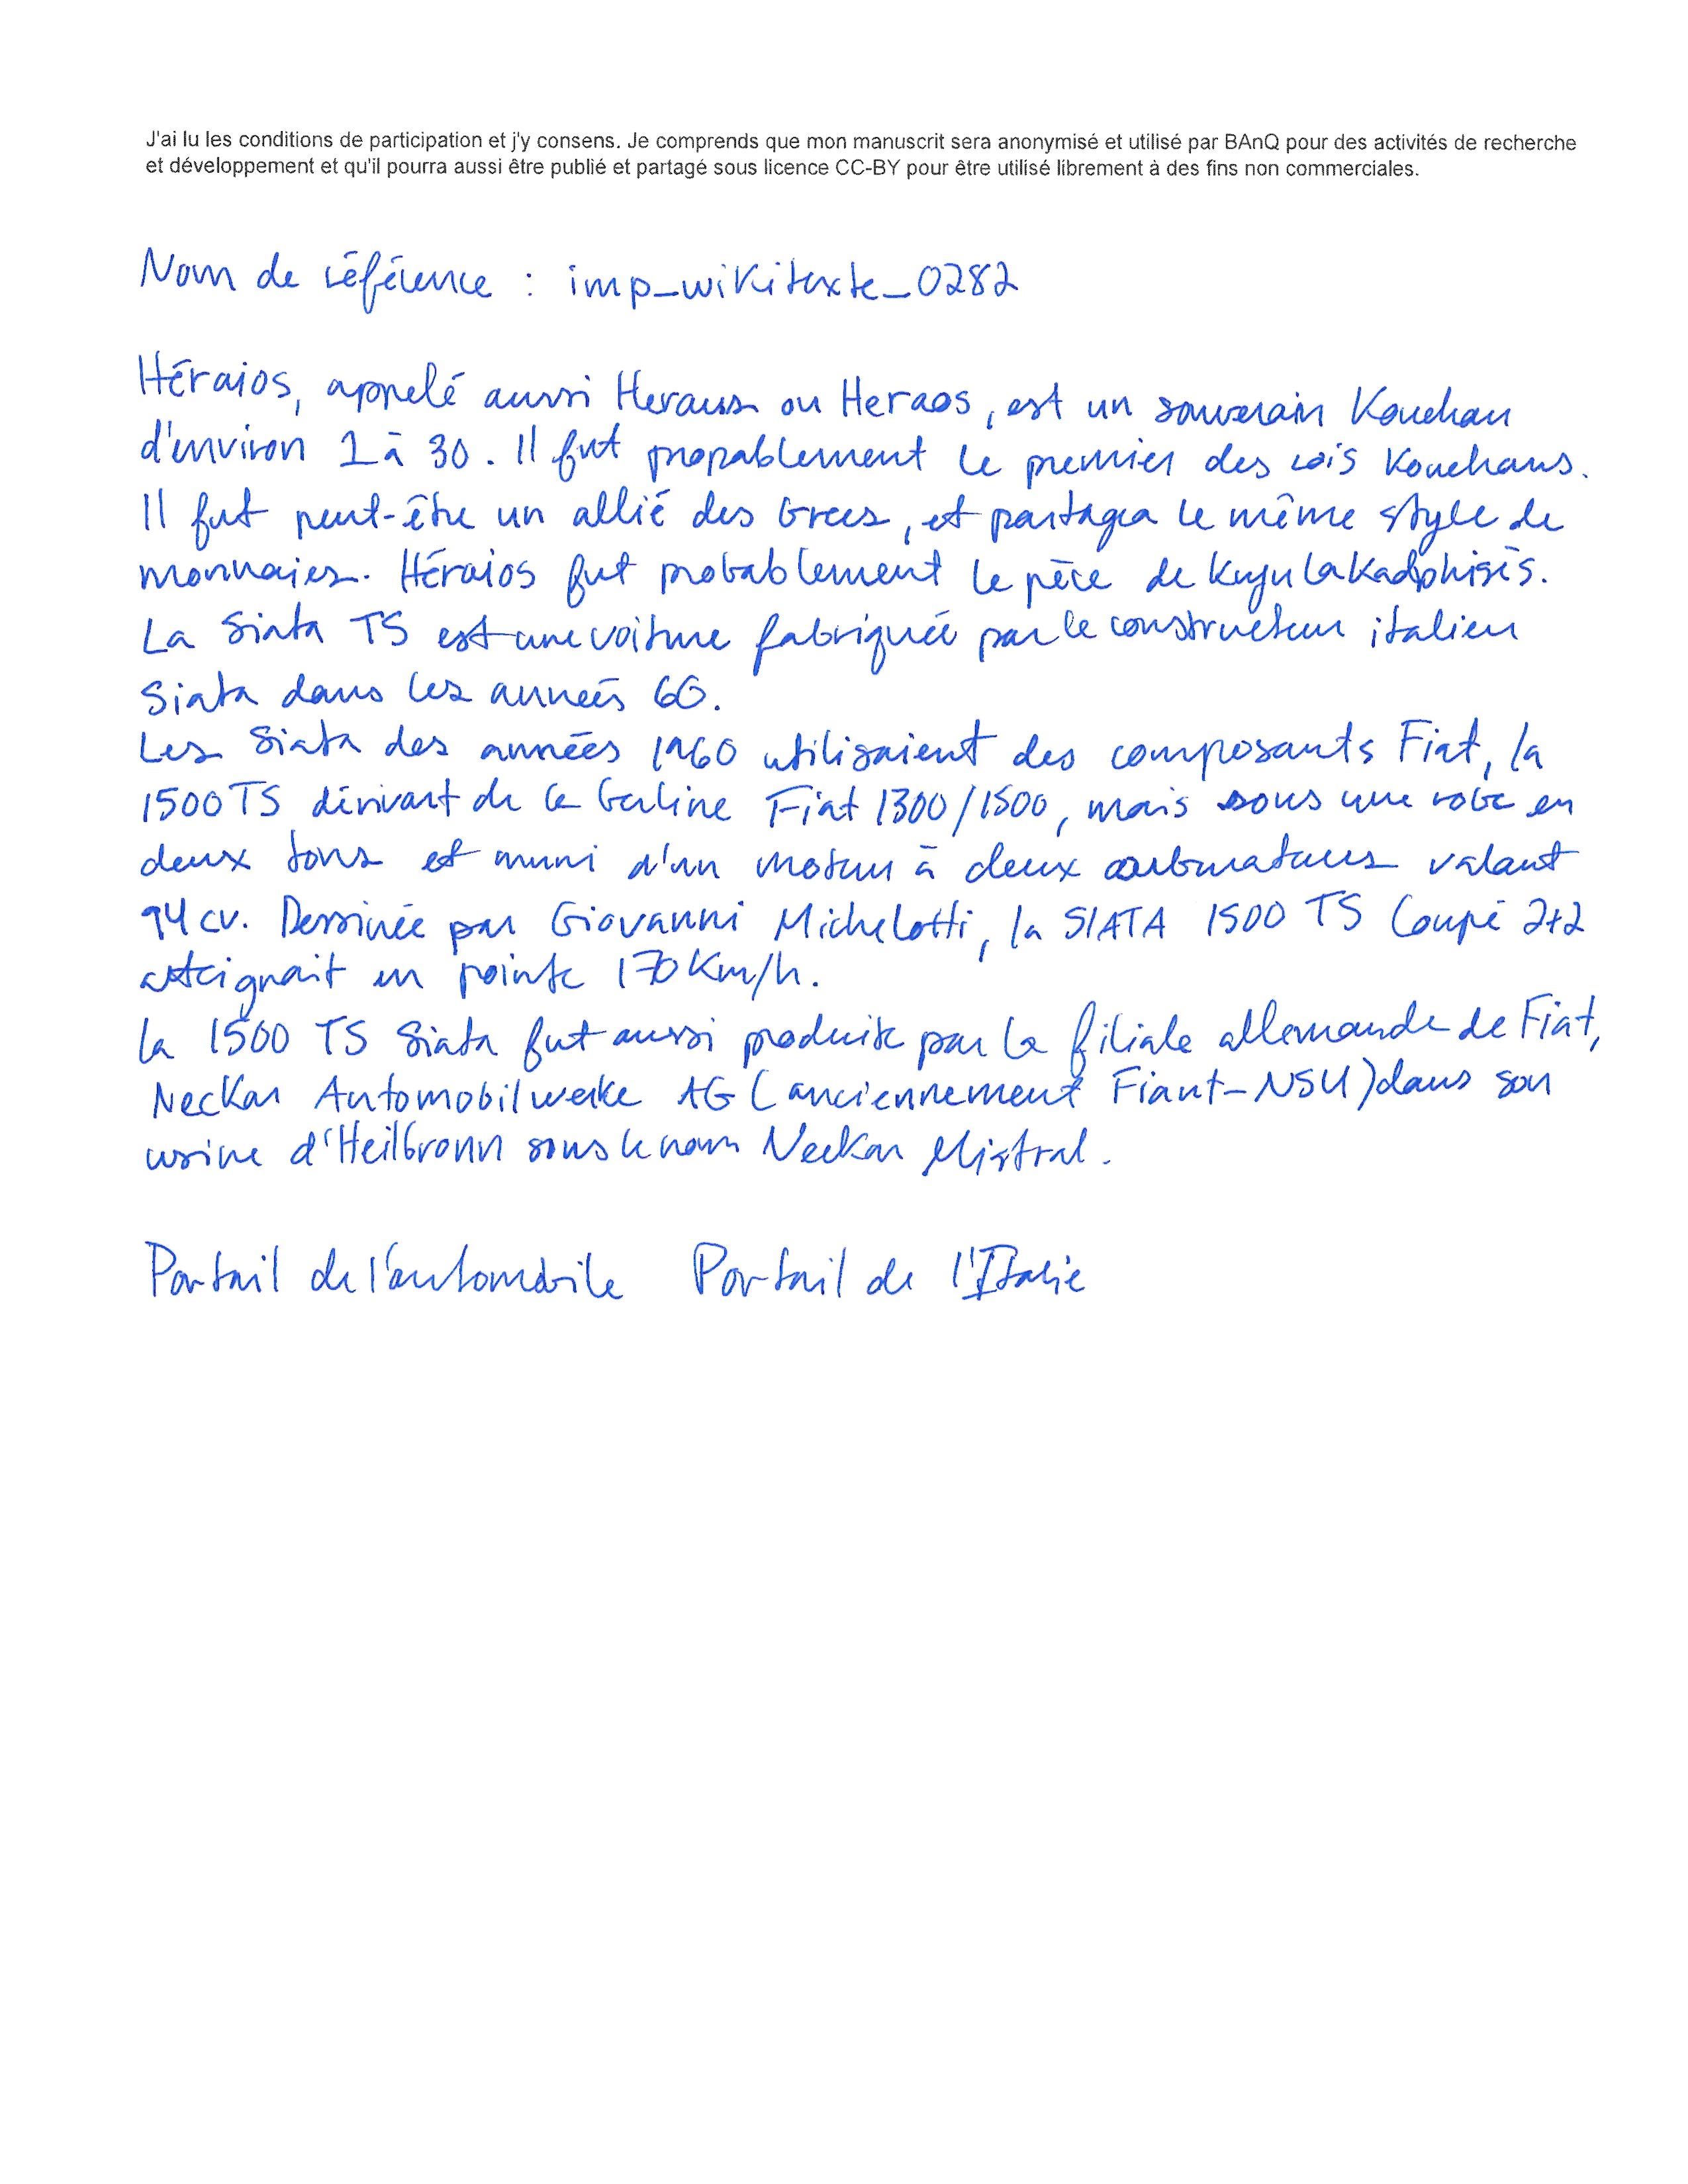 J'ai lu les conditions de participation et j'y consens. Je comprends que mon manuscrit sera anonymisé et utilisé par BAnQ pour des activités de recherche
et développement et qu'il pourra aussi être publié et partagé sous licence CC-BY pour être utilisé librement à des fins non commerciales.
Nom de référence : imp_wikitexte_0282
Héraios, appelé aussi Heraus ou Heraos, est un souverain Kouchan
d'environ 1 à 30. Il fut propablement le premier des rois Kouchans.
Il fut peut-être un allié des Grecs, et partagea le même style de
monnaies. Héraios fut probablement le père de Kujula Kadphisès.
La Siata TS est une voiture fabriquée par le constructeur italien
Siata dans les années 60.
Les Siata des années 1960 utilisaient des composants Fiat, la
1500 TS dérivant de la berline Fiat 1300/1500, mais sous une robe en
deux tons et muni d'un moteur à deux carburateurs valant
94 cv. Dessinée par Giovanni Michelotti, la SIATA 1500 TS Coupé 2+2
atteignait en pointe 170 Km/h.
la 1500 TS Siata fut aussi produite par la filiale allemande de Fiat,
Neckar Automobilwerke AG (anciennement Fiant-NSU) dans son
usine d'Heilbronn sous le nom Neckar Mistral.
Portail de l'automobile Portail de l'Italie